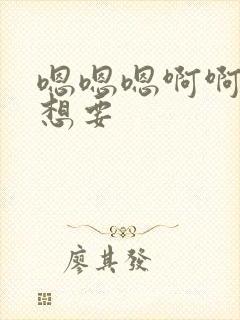 嗯嗯嗯啊啊
想要
廖其發